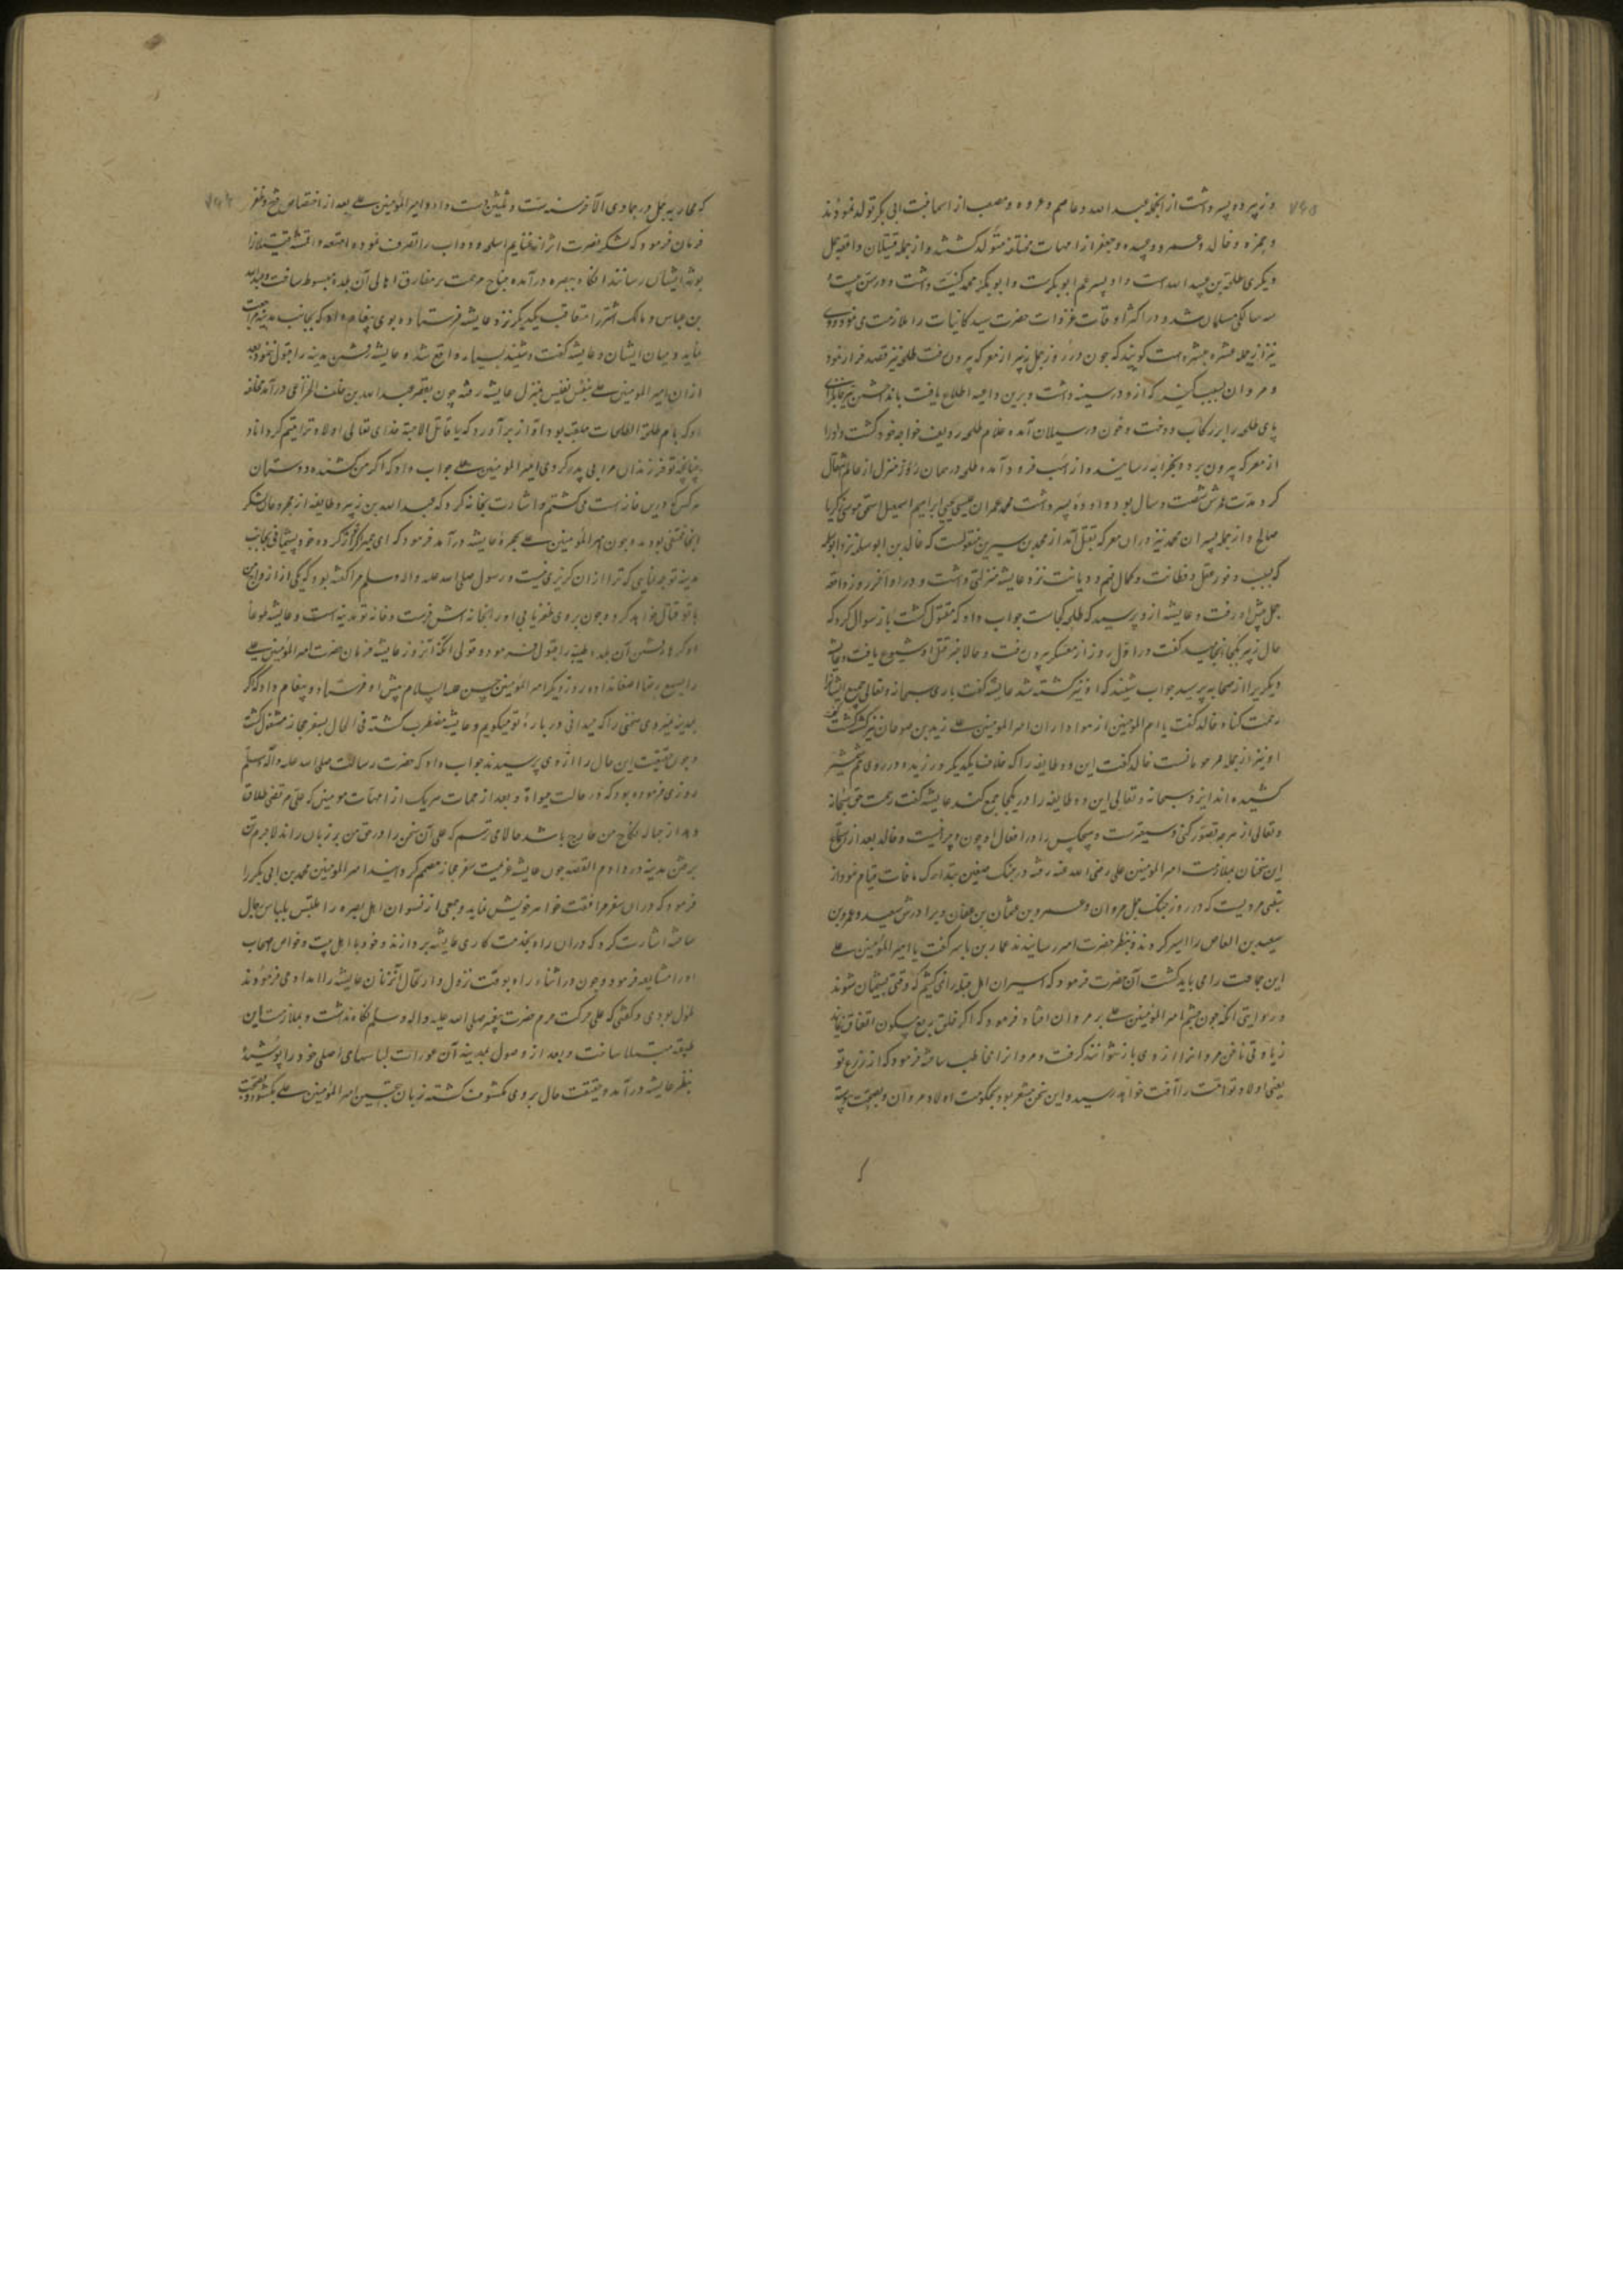 ۷۶۵
و زبیر ده پسر داشت از آنجمله عبد الله و عاصم و عروه و مصعب از اسما بنت ابی بکر تولد نمودند
و حمزه و خالد و عمرو و عبیده و جعفر از امهات مختلفه متولد گشتند و از جمله قتیلان واقعه جمل
دیکری طلحة بن عبید الله است و او پسر عم ابو بکرست و ابو بکر محمد کنیت داشت و در سن بیست
سالکی مسلمان شد و در اکثر اوقات غزوات حضرت سید کاینات را ملازمت می نمود و وی
نیز از جمله عشره مبشره است کویند که چون در روز جمل زبیر از معرکه بیرون رفت طلحه نیز قصد فرار نمود
و مروان بسبب کینه که ازو در سینه داشت و برین داعیه اطلاع یافت
پای طلحه را بر رکاب دوخت و خون در سیلان آمده غلام طلحه ردیف خواجه خود کشت و او را
از معرکه بیرون برد و بخرابه رسانیده و از اسب فرود آمده طلحه در همان روز از منزل از عالم انتقال
کرد مدت عمرش شصت و سال بود و او ده پسر داشت محمد عمران عیسی یحیی ابراهیم اسمعیل اسحق موسی زکریا
صالح و از جمله پسران محمد نیز دران معرکه بقتل آمد از محمد بن سیرین منقولست که خالد بن
که بسبب وفور عقل و فطانت و کمال فهم و دیانت نزد عایشه منزلتی داشت و در اواخر روز واقعه
جمل پیش او رفت و عایشه ازو پرسید که طلحه کجاست جواب داد که مقتول کشت باز سوال کرد که
حال زبیر بکجا انجامید کفت در اول روز از معسکر بیرون رفت و حالا خبر قتل او شیوع یافت و عایشه
دیکریرا از صحابه پرسید جواب شنید که او نیز کشته شد عایشه کفت باری سبحانه و تعالی جمیع ایشانرا
رحمت کناد خالد کفت یا ام المومنین از هواداران امیر المومنین علی زید بن صوحان نیز کشته کشت
او نیز از جمله مرحومانست خالد کفت این دو طایفه را که خلاف یکدیکر ورزیده و در روی هم شمشیر
کشیده اند ایزد سبحانه و تعالی این دو طایفه را در یکجا جمع کند عایشه کفت رحمت حق سبحانه
و تعالی از هرچه تصور کنی وسیعترست و هیچکس را در افعال او چون و چرا نیست و خالد بعد از استماع
این سخنان بملازمت امیر المومنین علی رضی الله عنه رفته در جنک صفین بتدارک مافات قیام نمود از
شعبی مرویست که در روز جنک جمل مروان و عمرو بن عثمان بن عفان و برادرش سعید و عمرو بن
سعید بن العاص را اسیر کردند و بنظر حضرت امیر رسانیدند عمار بن یاسر کفت یا امیر المومنین علی
این جماعت را می باید کشت آن حضرت فرمود که اسیران اهل قبله را نمی کشیم که وقتی پشیمان شوند
و روایتی آنکه چون چشم امیر المومنین علی بر مروان افتاد فرمود که اگر خلق ربع مسکون اتفاق نمایند
زیادتی ناخن مروانرا از وی باز نتوانند گرفت و مروانرا مخاطب ساخته فرمود که از زرع تو
یعنی اولاد تو امت را آفت خواهد رسید و این سخن مشعر بود بحکومت اولاد مروان و بصحت پیوسته
که
که محاربه جمل در جمادی الآخر سنه ست و ثلثین دست داد و امیر المومنین علی بعد از اختصاص فتح و ظفر
فرمان فرمود که لشکر نصرت اثر از غنایم اسلحه و دواب را تصرف نموده امتعه و اقمشه
بورثه ایشان رسانند آنکاه ببصره درآمده جناح مرحمت بر مفارق اهالی آن بلده مبسوط ساخت و عبد الله
بن عباس و مالک اشتر را متعاقب یکدیکر نزد عایشه فرستاد و بوی پیغام داد که بجانب مدینه مراجعت
نماید و میان ایشان و عایشه کفت و شنید بسیار واقع شد و عایشه رفتن مدینه را قبول ننمود بعد
ازان امیر المومنین علی بنفس نفیس بمنزل عایشه رفته چون بقصر عبد الله بن خلف الخزاعی درآمد
او که بام طلحة الطلحات ملقب بود آواز برآورد که یا قاتل الاحبة خدای تعالی اولاد ترا یتیم کرداناد
چنانچه تو فرزندان مرا بی پدر کردی امیر المومنین علی جواب داد که اکر من کشنده دوستان
هر کس که درین خانه است می کشتم و اشارت بخانه کرد که عبد الله بن زبیر و طایفه از مجروحان لشکر
آنجا مختفی بودند و چون امیر المومنین علی بحجره عایشه درآمد فرمود که ای حمیرا
مدینه توجه نمایی که ترا ازان کزیری نیست و رسول صلی الله علیه و اله و سلم مرا کفته بود که یکی از ازواج من
با تو قتال خواهد کرد و چون بر وی ظفر یابی او را بخانه اش فرست و خانه تو مدینه است و عایشه طوعا
او کرها رفتن آن بلده طیبه را قبول فرمود و قولی آنکه آنروز عایشه فرمان حضرت امیر المومنین علی
را بسمع رضا اصغا نداده روز دیکر امیر المومنین حسین علیه السلام پیش او فرستاد و پیغام داد که اگر
بمدینه نمیروی سخنی را که میدانی در باره تو میکویم و عایشه مضطرب کشته فی الحال بسفر حجاز مشغول کشت
و چون حقیقت این حال را از وی پرسیدند جواب داد که حضرت رسالت صلی الله علیه و آله و سلم
روزی فرموده بود که در حالت حیوة و بعد از ممات هر یک از امهات مومنین که علی مرتضی طلاق
دهد از حباله نکاح من خارج باشد حالا می ترسم که علی آن سخن را در حق من بر زبان راند لاجرم
برفتن مدینه در دادم القصه چون عایشه عزیمت سفر حجاز مصمم کردانید امیر المومنین محمد بن ابی بکر را
فرمود که دران سفر مرافقت خواهر خویش نماید و جمعی از نسوان اهل بصره را ملبس بلباس رجال
ساخته اشارت کرد که دران راه بخدمت کاری عایشه پردازند و خود با اهل بیت و خواص اصحاب
او را مشایعه فرمود و چون در اثناء راه بوقت نزول و ارتحال آن زنان عایشه را امداد می فرمودند
ملول بودی و کفتی که علی حرکت حرم حضرت پیغمبر صلی الله علیه و اله و سلم نکاه نداشت و بملازمت این
طبقه مبتلا ساخت و بعد از وصول بمدینه آن عورات لباسهای اصلی خود را پوشیده
بنظر عایشه درآمدند و حقیقت حال بر وی مکشوف کشته زبان بتحسین امیر المومنین علی بکشود و بصحت